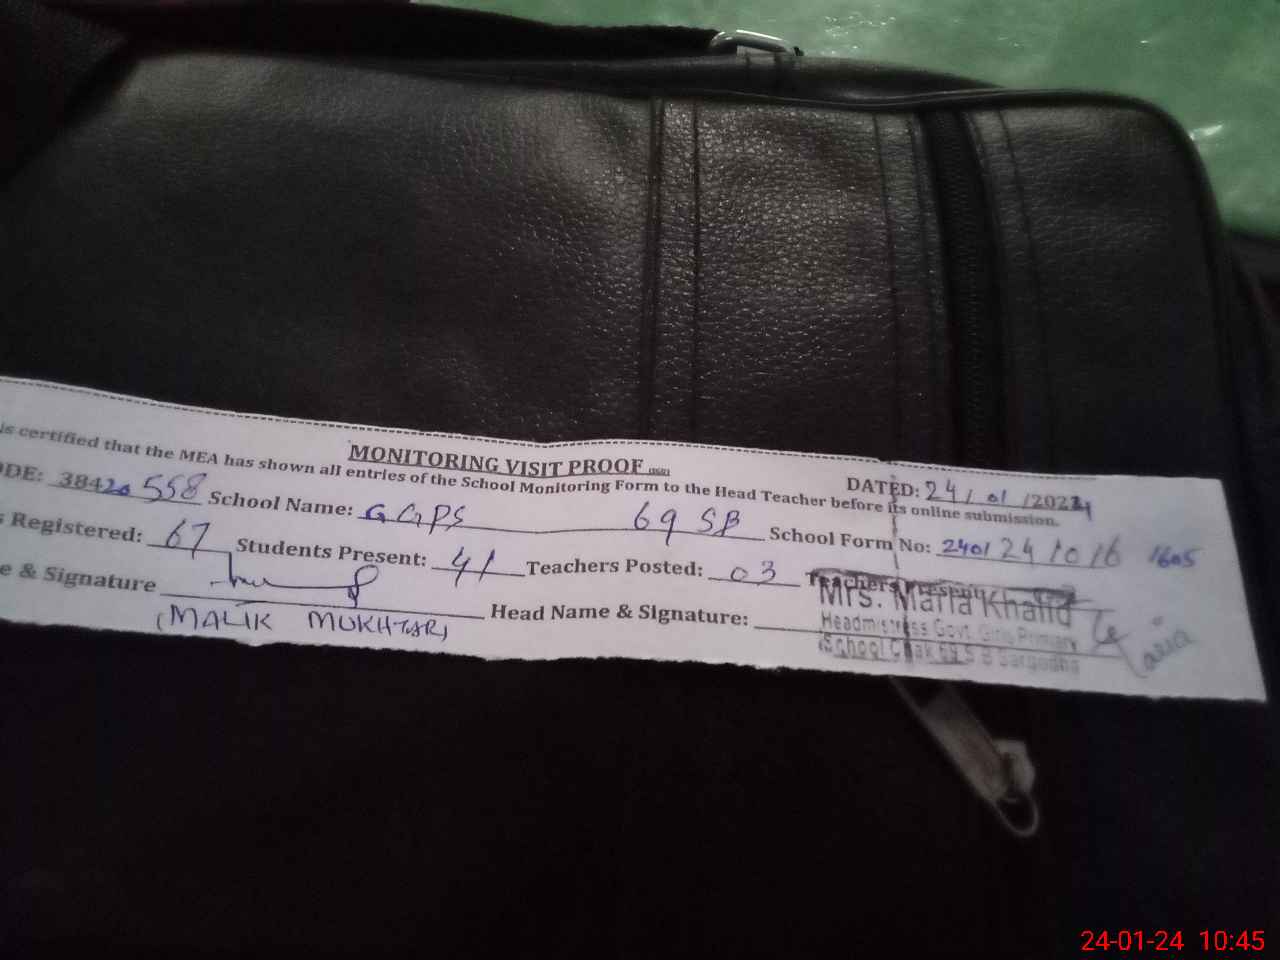 MONITORING VISIT PROOF
DATED: 24/01/2024
is certified that the MEA has shown all entries of the School Monitoring Form to the Head Teacher before its online submission.
ODE: 38420558 School Name: GGPS 69 SB School Form No: 2401241016 1605
s Registered: 67 Students Present: 41 Teachers Posted: 03 Teachers Present:
e & Signature
(MALIK MUKHTAR)
Head Name & Signature:
Mrs. Maria Khalid
Headmistress Govt. Girls Primary
School Chak 69 S B Sargodha
24-01-24 10:45